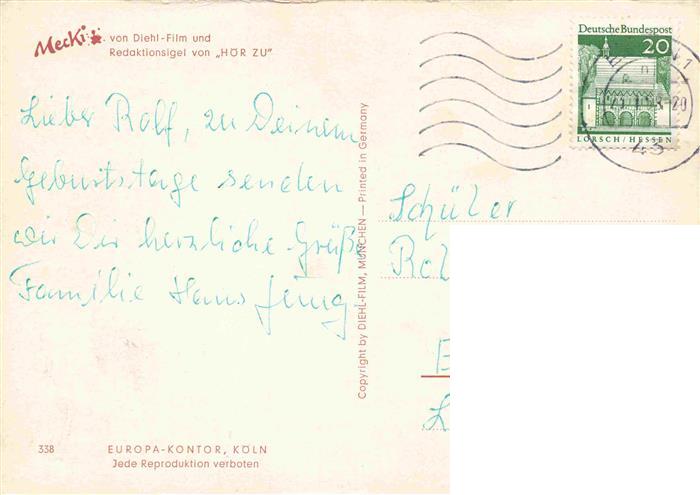 Mecki von Diehl-Film und
Redaktionsigel von „HÖR ZU"
Deutsche Bundespost
20
LORSCH/HESSEN
Lieber Rolf, zu Deinem
Geburtstage senden
wir Dir herzliche Grüße
Familie Hans Jung
Copyright by DIEHL-FILM, MÜNCHEN — Printed in Germany
Schüler
338
EUROPA-KONTOR, KÖLN
Jede Reproduktion verboten